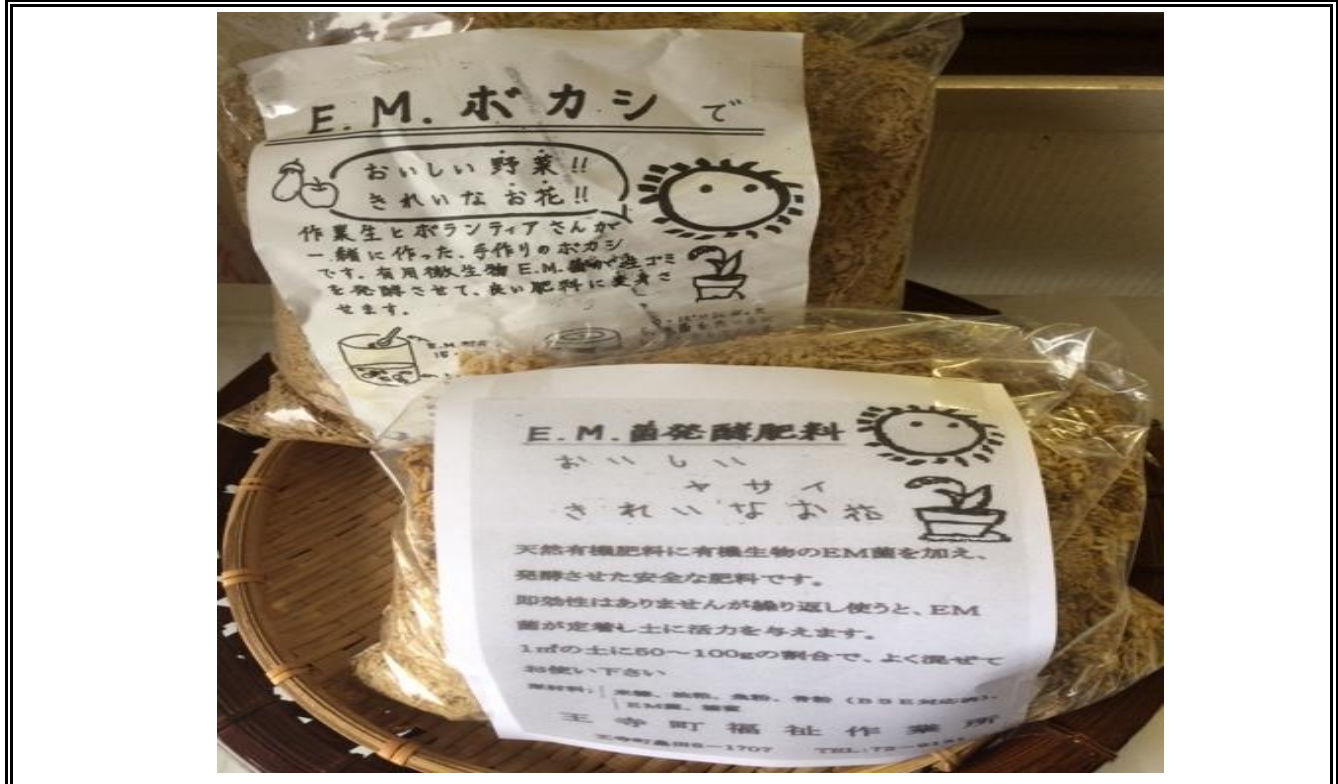 E.M.ボカシで
おいしい野菜!!
きれいなお花!!
作業生とボランティアさんが
一緒に作った、手作りのボカシ
です。有用微生物E.M.菌が生ゴミ
を発酵させて、良い肥料に変身さ
せます。
E.M.菌発酵肥料
おいしい
ヤサイ
きれいなお花
天然有機肥料に有機生物のEM菌を加え、
発酵させた安全な肥料です。
即効性はありませんが繰り返し使うと、EM
菌が定着し土に活力を与えます。
1㎡の土に50～100gの割合で、よく混ぜて
お使い下さい
原材料: 米糠、油粕、魚粉、骨粉（BSE対応済）、
EM菌、糖蜜
王寺町福祉作業所
王寺町畠田6－1707 TEL:73－